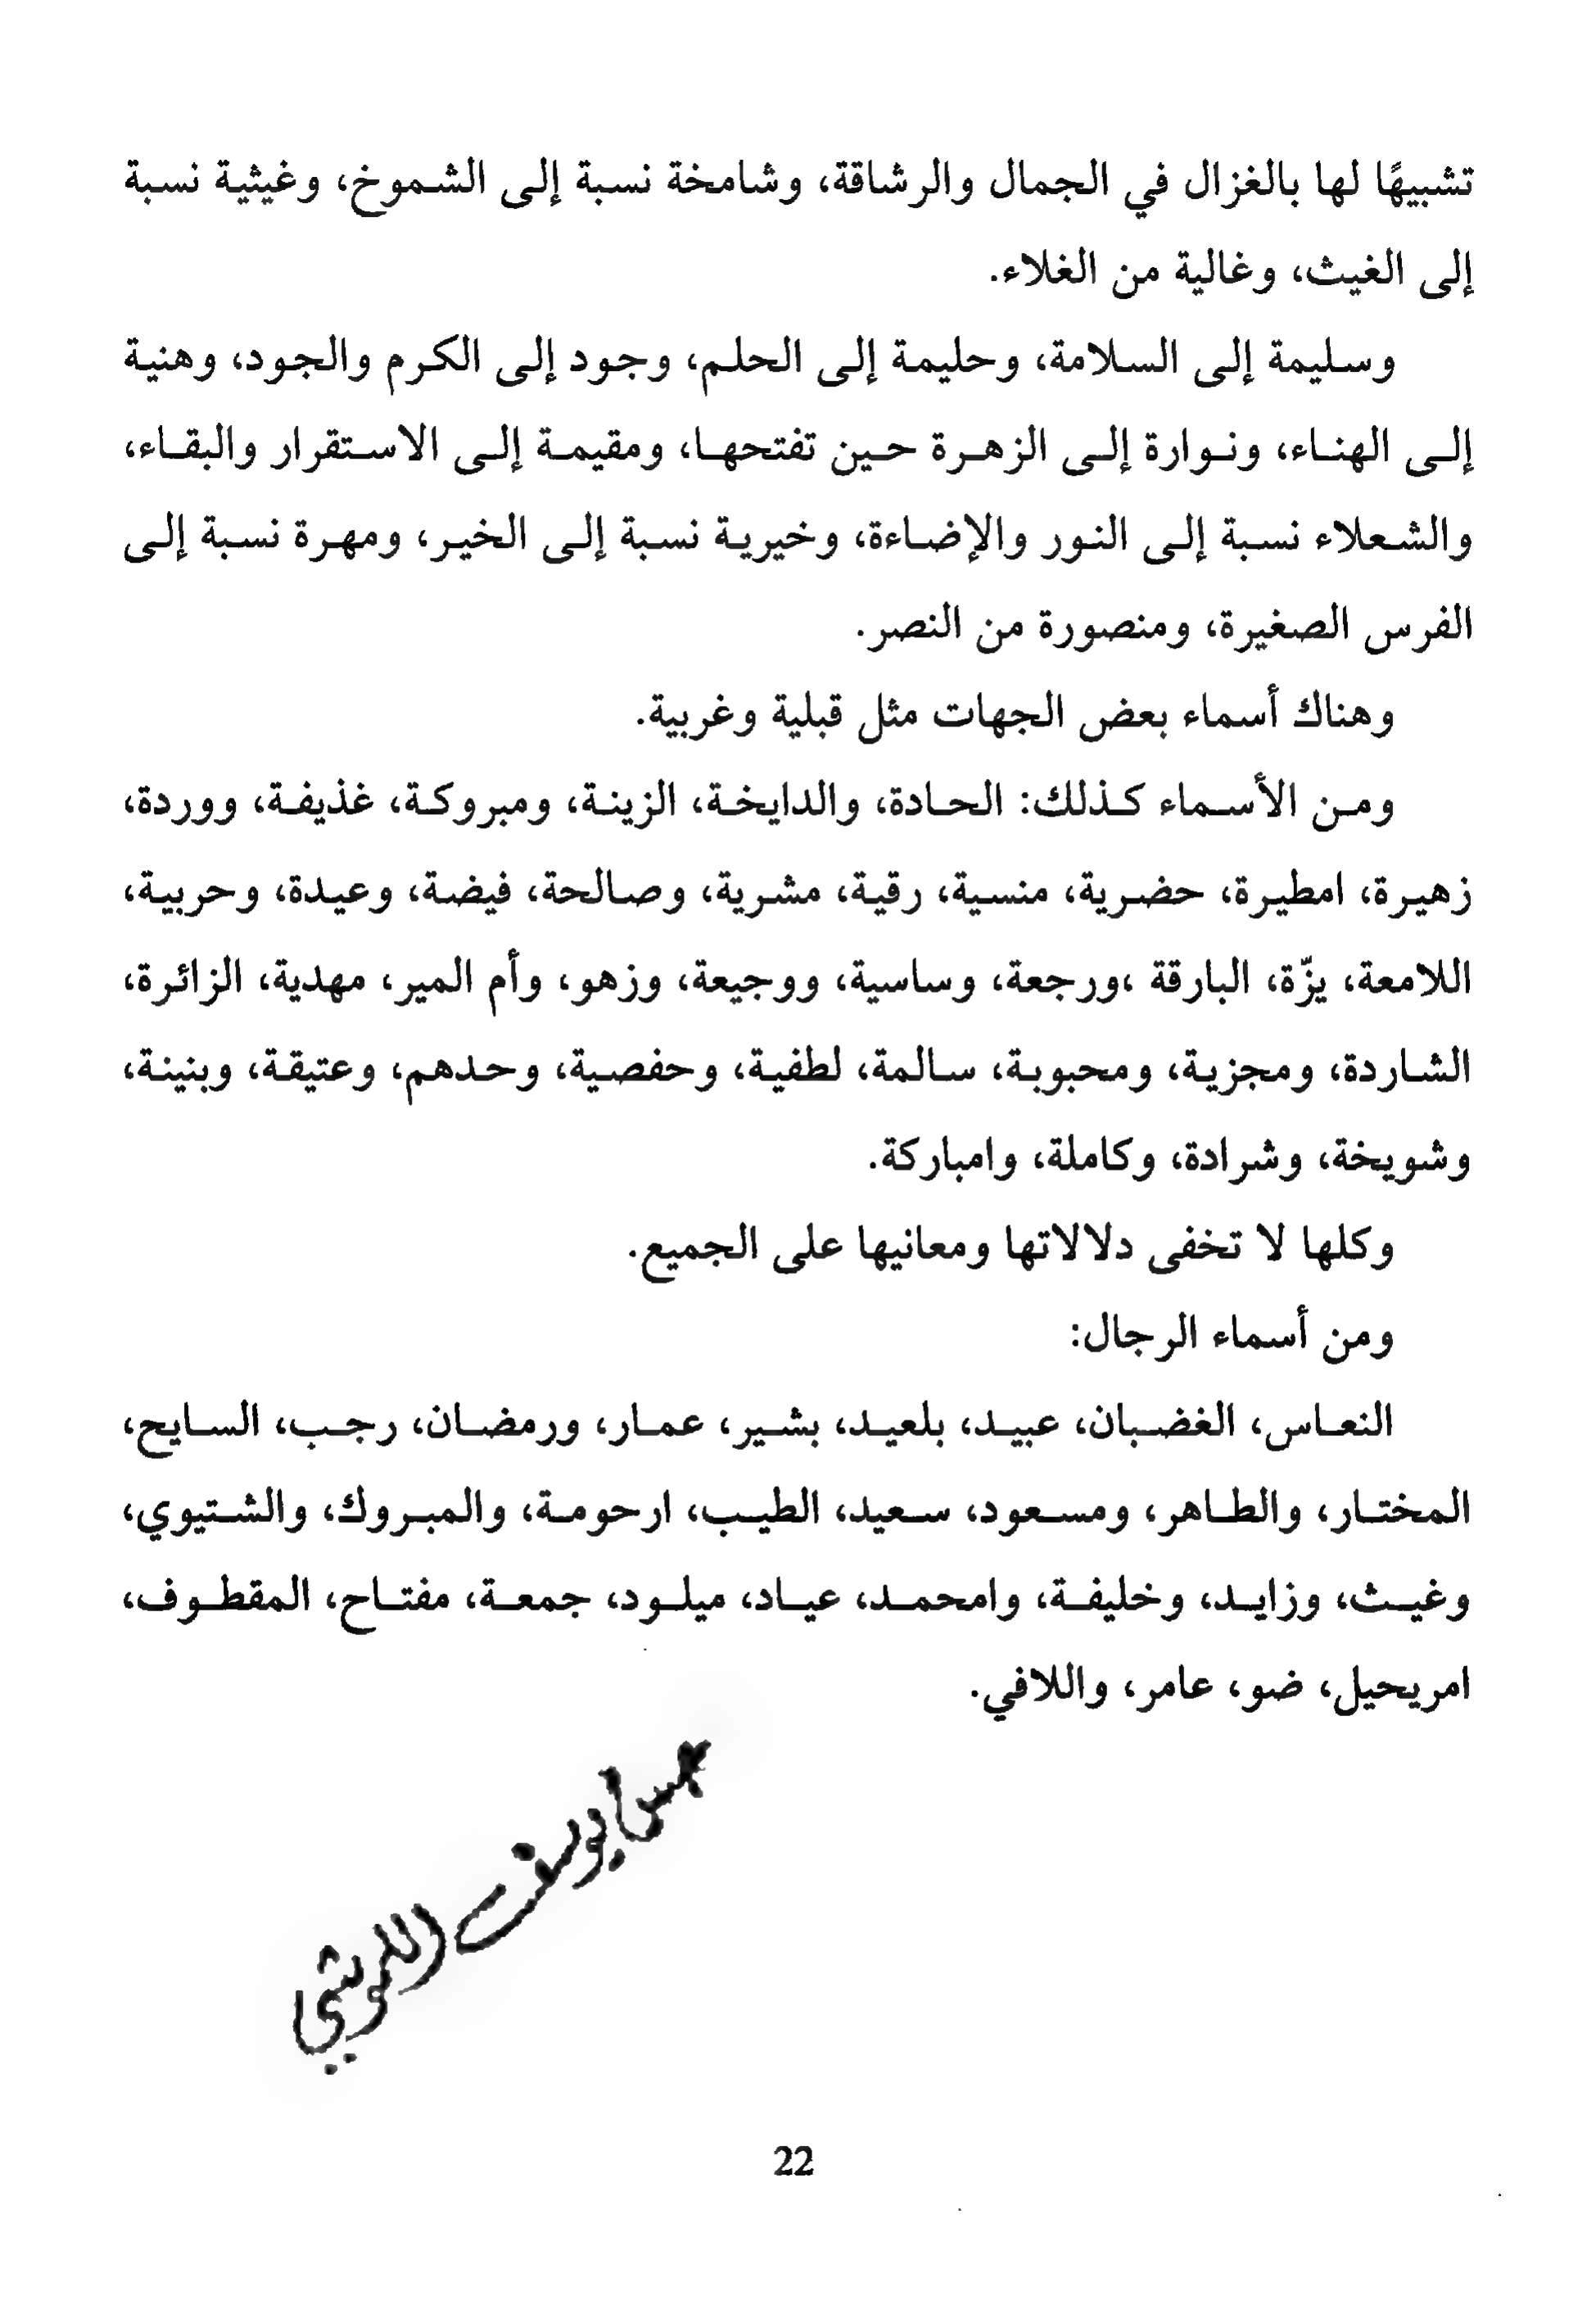 تشبيهًا لها بالغزال في الجمال والرشاقة، وشامخة نسبة إلى الشموخ، وغيثية نسبة
إلى الغيث، وغالية من الغلاء.
وسليمة إلى السلامة، وحليمة إلى الحلم، وجود إلى الكرم والجود، وهنية
إلى الهناء، ونوارة إلى الزهرة حين تفتحها، ومقيمة إلى الاستقرار والبقاء،
والشعلاء نسبة إلى النور والإضاءة، وخيرية نسبة إلى الخير، ومهرة نسبة إلى
الفرس الصغيرة، ومنصورة من النصر.
وهناك أسماء بعض الجهات مثل قبلية وغربية.
ومن الأسماء كذلك: الحادة، والدايخة، الزينة، ومبروكة، غذيفة، ووردة،
زهيرة، امطيرة، حضرية، منسية، رقية، مشرية، وصالحة، فيضة، وعيدة، وحربية،
اللامعة، يزّة، البارقة ،ورجعة، وساسية، ووجيعة، وزهو، وأم المير، مهدية، الزائرة،
الشاردة، ومجزية، ومحبوبة، سالمة، لطفية، وحفصية، وحدهم، وعتيقة، وبنينة،
وشويخة، وشرادة، وكاملة، وامباركة.
وكلها لا تخفى دلالاتها ومعانيها على الجميع.
ومن أسماء الرجال:
النعاس، الغضبان، عبيد، بلعيد، بشير، عمار، ورمضان، رجب، السايح،
المختار، والطاهر، ومسعود، سعيد، الطيب، ارحومة، والمبروك، والشتيوي،
وغيث، وزايد، وخليفة، وامحمد، عياد، ميلود، جمعة، مفتاح، المقطوف،
امريحيل، ضو، عامر، واللافي.
يوسف
22